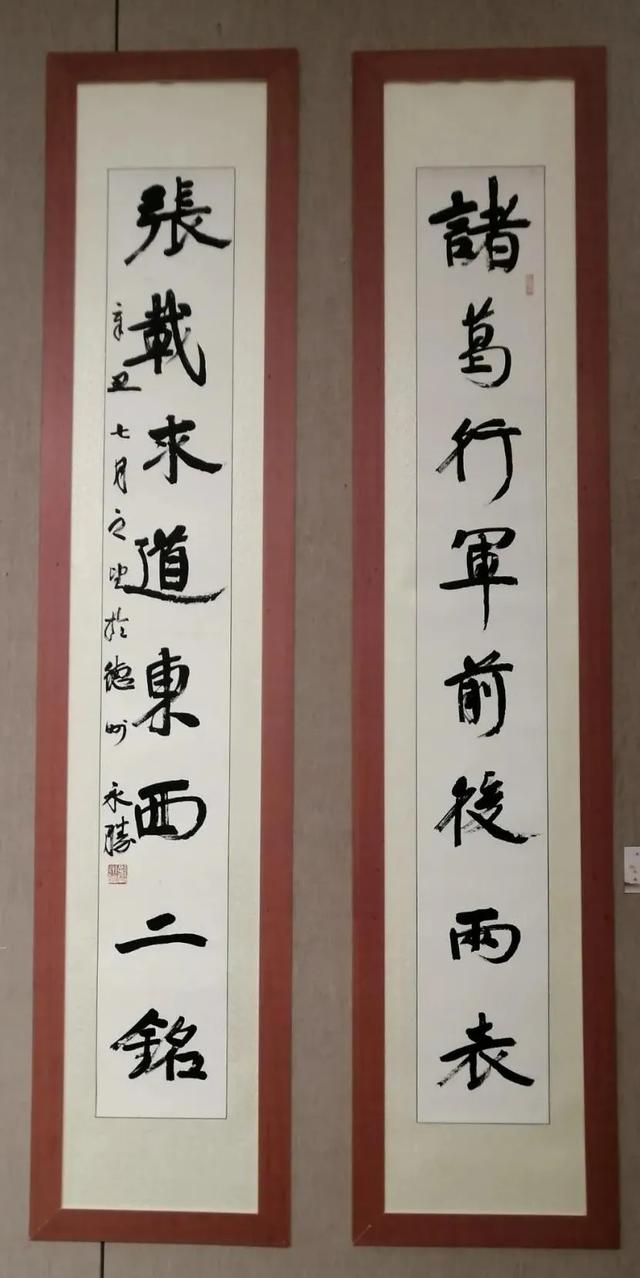 諸葛行軍前後兩表
張載求道東西二銘
辛丑七月之望於德州 永勝